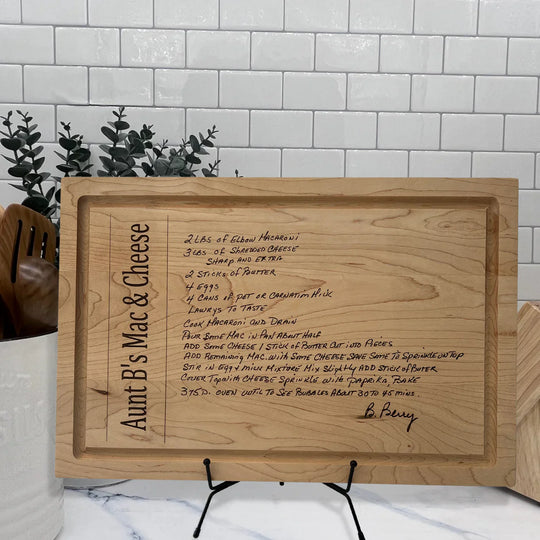 Aunt B's Mac & Cheese
2 LBS of Elbow Macaroni
3 LBS of Shredded Cheese
Sharp and Extra
2 Sticks of Butter
4 Eggs
4 Cans of Pet or Carnation Milk
Lawrys To Taste
Cook Macaroni and Drain
Pour Some Mac in Pan About Half
Add Some Cheese 1 Stick of Butter Cut into Pieces
Add Remaining Mac. with Some Cheese Save Some To Sprinkle on Top
Stir in Egg + Milk Mixture Mix Slightly Add Stick of Buter
Cover Top with Cheese Sprinkle with Paprika, Bake
375 D. oven until To See Bubbles About 30 to 45 mins.
B. Berry